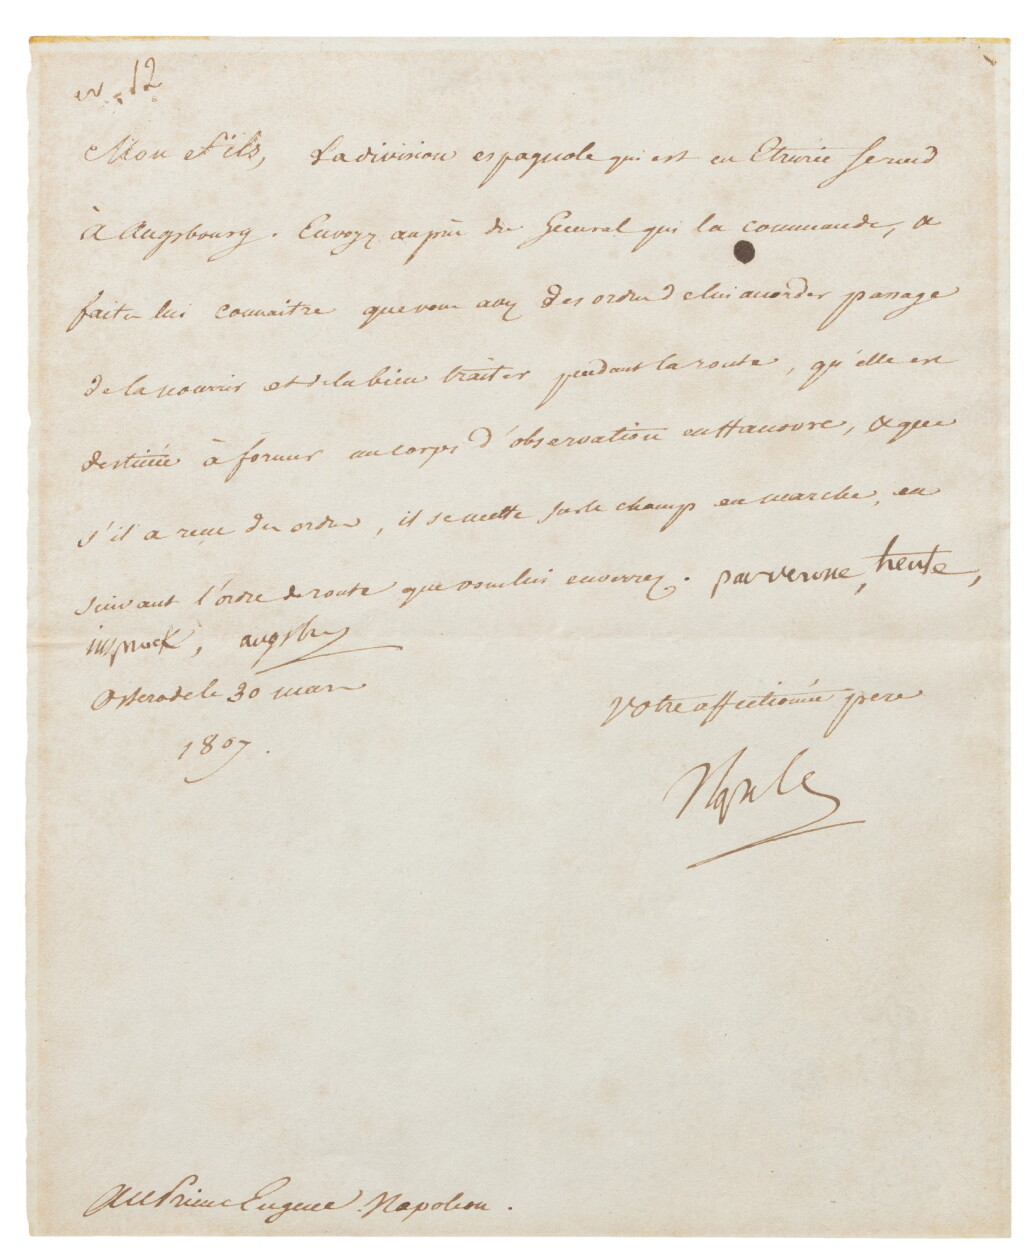 Mon Fils, La division espagnole qui est en Etrurie se rend
à Augsbourg. Envoyez auprès du Général qui la commande, &
faites lui connaitre que vous avez des ordres de lui accorder passage
de la nourrir et de la bien traiter pendant la route, qu'elle est
destinée à former un corps d'observation en Hanovre, & que
s'il a reçu des ordres, il se mette sur le champ en marche, en
suivant l'ordre de route que vous lui enverrez. par verone, trente,
inspruck, augsbg
Osterode le 30 mars
1807.
Votre affectionné pere
Npole
Au Prince Eugene Napoleon.